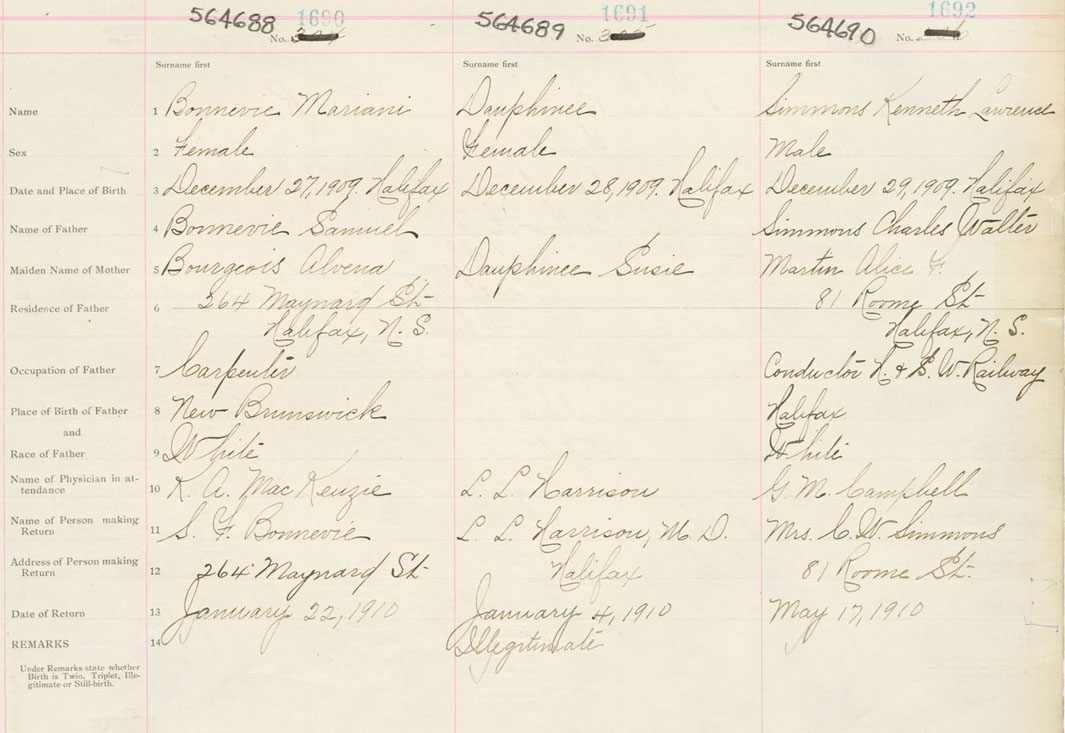 564688 1690 564689 1691 564690 1692
No. No. No.
Surname first Surname first Surname first
Name 1 Bonnevie Mariani Dauphinee Simmons Kenneth Lawrence
Sex 2 Female Female Male
Date and Place of Birth 3 December 27, 1909. Halifax December 28, 1909. Halifax December 29, 1909. Halifax
Name of Father 4 Bonnevie Samuel Simmons Charles Walter
Maiden Name of Mother 5 Bourgeois Alvena Dauphinee Susie Martin Alice F.
Residence of Father 6 264 Maynard St. 81 Roome St
Halifax, N. S. Halifax, N. S.
Occupation of Father 7 Carpenter Conductor H. & S. W. Railway
Place of Birth of Father 8 New Brunswick Halifax
and
Race of Father 9 White White
Name of Physician in at-
tendance 10 K. A. MacKenzie L. L. Harrison G. M. Campbell
Name of Person making
Return 11 S. F. Bonnevie L. L. Harrison, M. D. Mrs. C. W. Simmons
Address of Person making
Return 12 264 Maynard St Halifax 81 Roome St.
Date of Return 13 January 22, 1910 January 4, 1910 May 17, 1910
REMARKS 14 Illegitimate
Under Remarks state whether
Birth is Twin, Triplet, Ille-
gitimate or Still-birth.